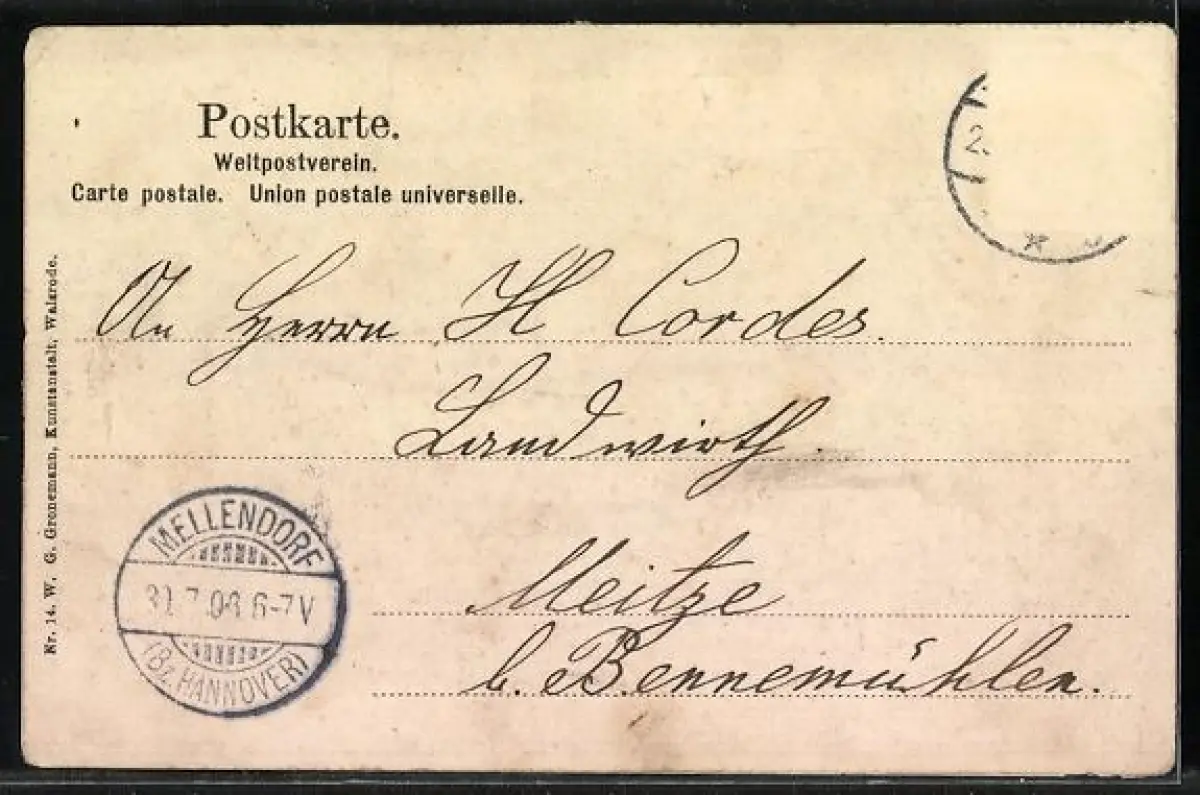 Postkarte.
Weltpostverein.
Carte postale. Union postale universelle.
An Herrn H Cordes.
Landwirth.
Meitze
b. Bennemühlen.
MELLENDORF
7.03 6-7V
(Bz. HANNOVER)
Nr. 14. W. G. Gronemann, Kunstanstalt, Walsrode.